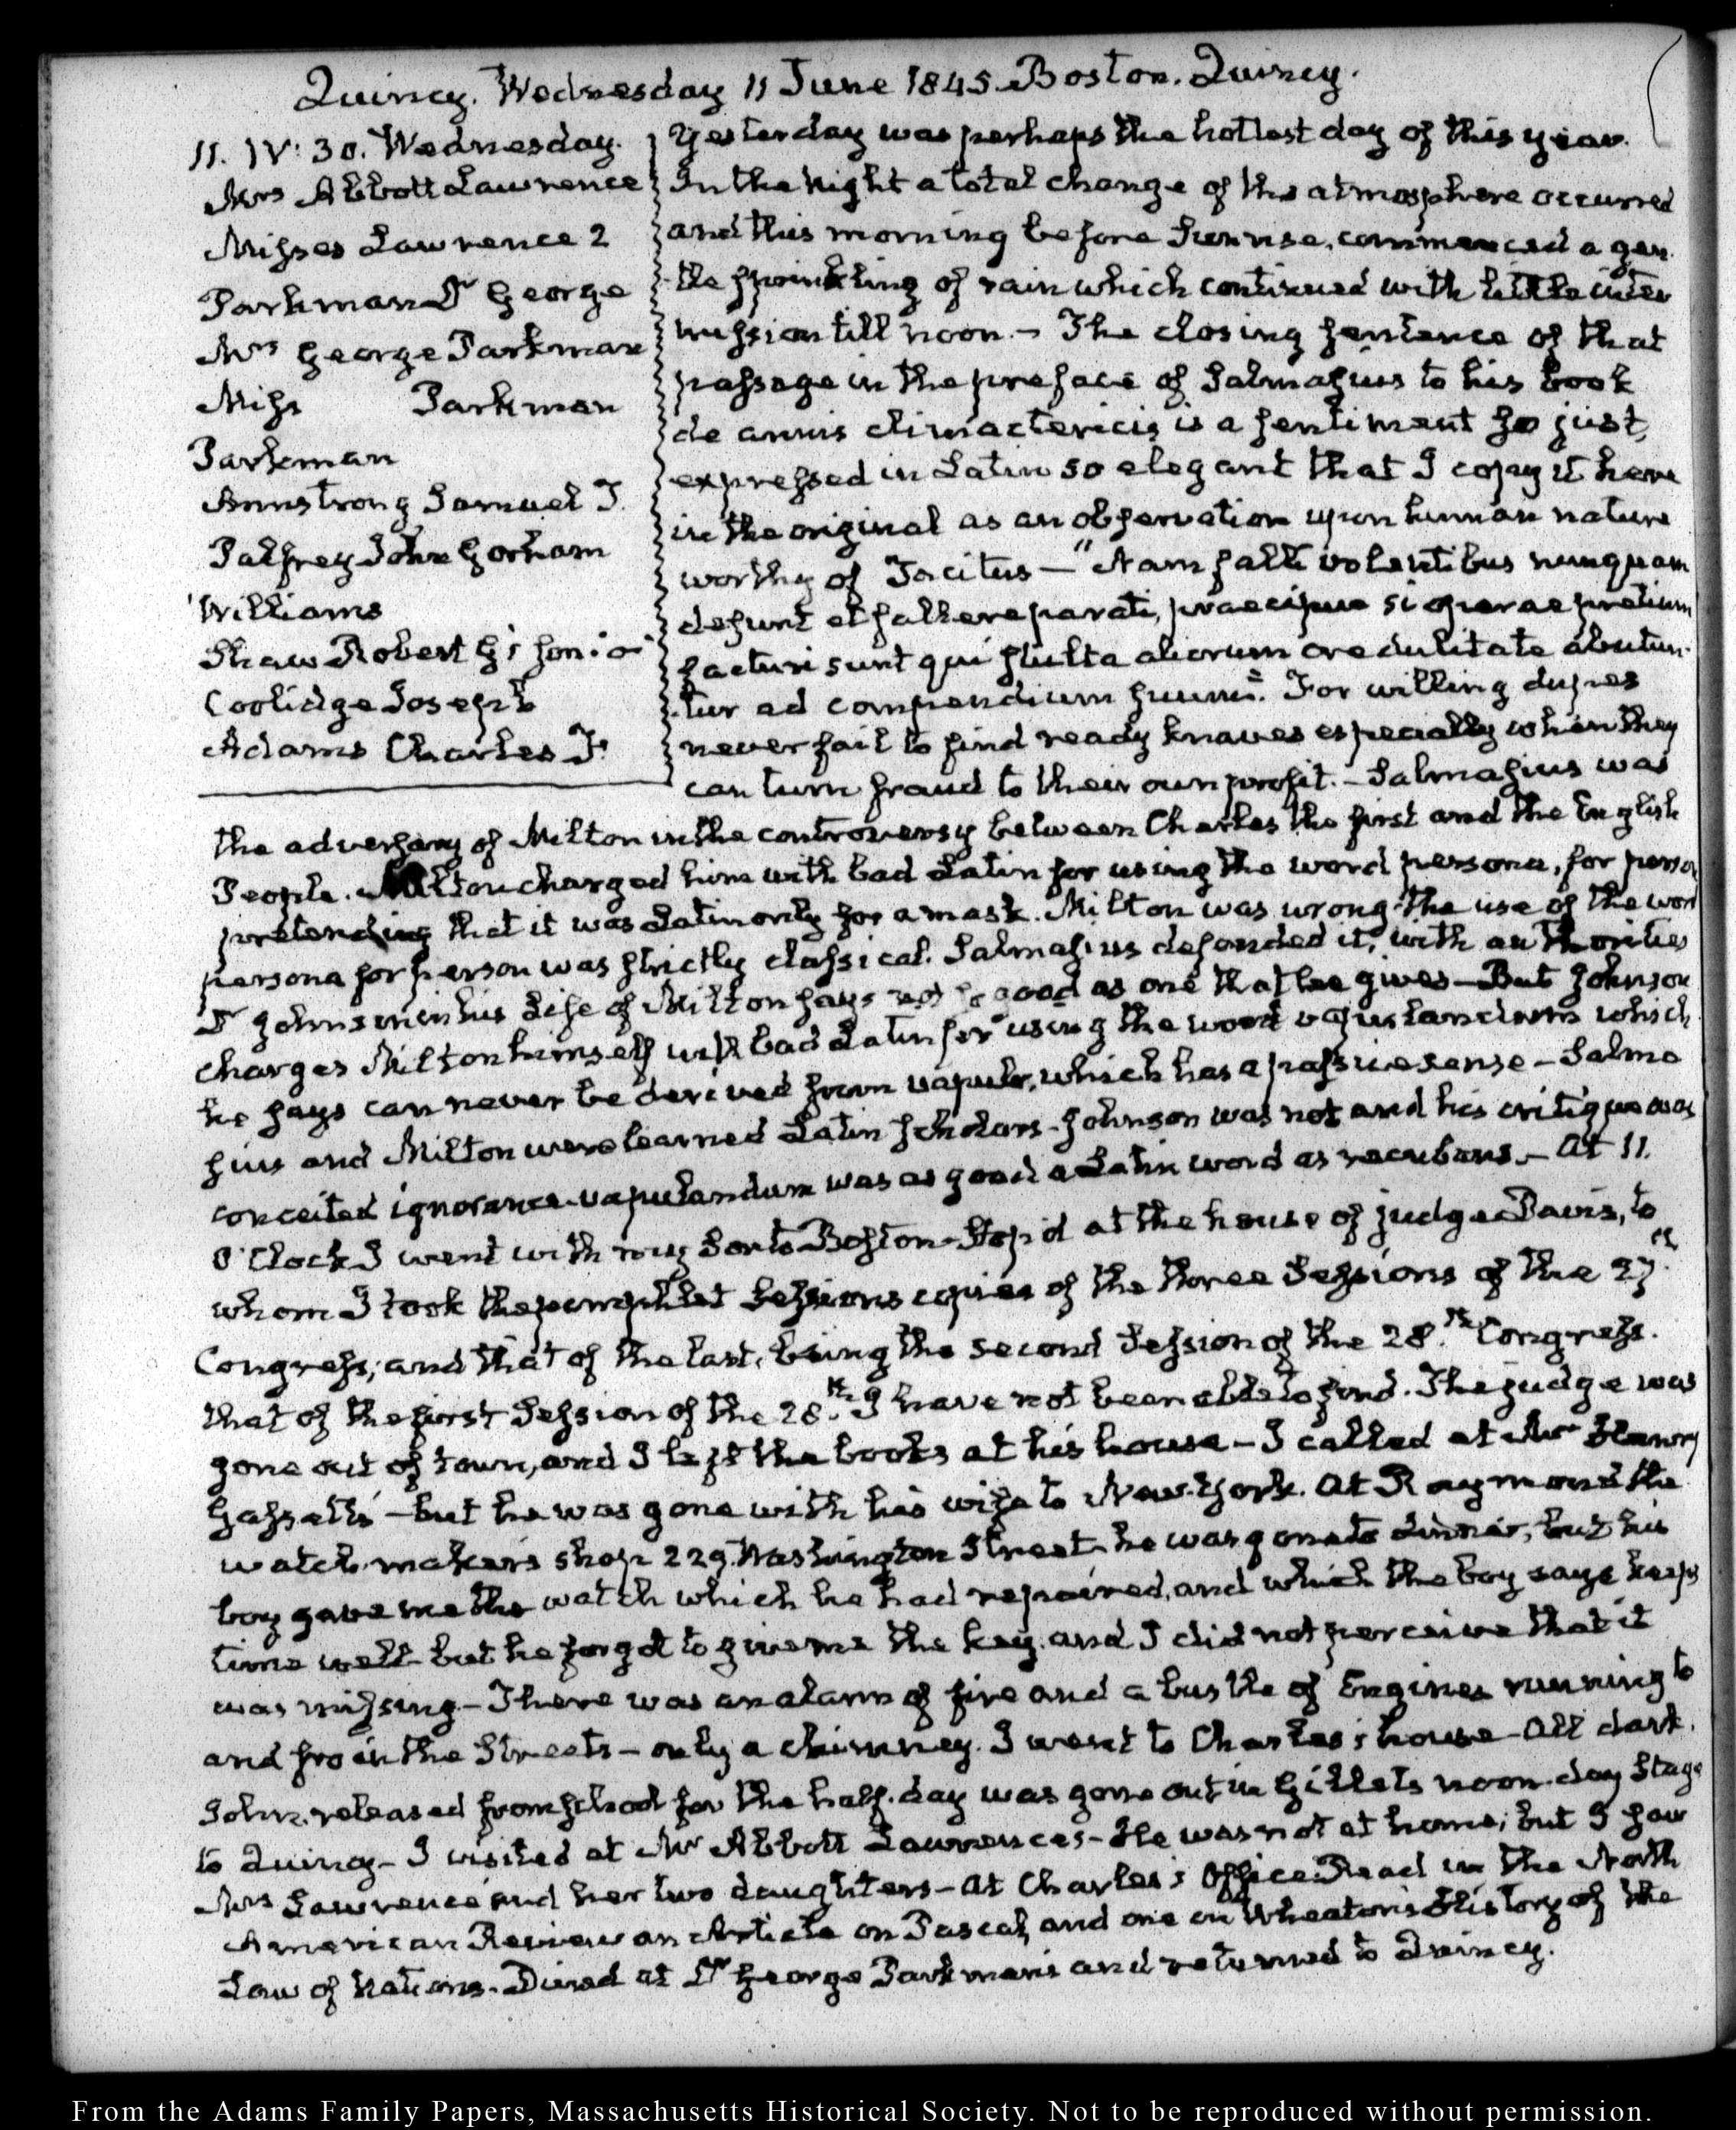 Quincy. Wednesday 11 June 1845. Boston. Quincy.
11. IV: 30. Wednesday.
Mrs Abbott Lawrence
Misses Lawrence 2
Parkman Dr George
Mrs George Parkman
Miss Parkman
Parkman
Armstrong Samuel T.
Palfrey John Gorham
Williams
Shaw Robert G's son
Coolidge Joseph
Adams Charles F.
Yesterday was perhaps the hottest day of this year.
In the Night a total change of the atmosphere occurred
and this morning before Sunrise, commenced a gen-
tle sprinkling of rain which continued with little inter
mission till noon. — The closing sentence of that
passage in the preface of Salmasius to his book
de annis climactericis is a sentiment so just,
expressed in Latin so elegant that I copy it here
in the original as an observation upon human nature
worthy of Tacitus — "Nam falli volentibus nunquam
defunt et fallere parati, praecipue si operae pretium
facturi sunt qui stulta aliorum credulitate abutun-
tur ad compendium suum". For willing dupes
never fail to find ready knaves especially when they
can turn fraud to their own profit. — Salmasius was
the adversary of Milton in the controversy between Charles the first and the English
People. Milton charged him with bad Latin for using the word persona, for person
pretending that it was Latin only for a mask. Milton was wrong. The use of the word
persona for person was strictly classical. Salmasius defended it, with authorities
Dr Johnson in his Life of Milton says not so good as one that he gives — But Johnson
charges Milton himself with bad Latin for using the word vapulandum which
he says can never be derived from vapulo, which has a passive sense — Salma
sius and Milton were learned Latin scholars — Johnson was not and his critique was
conceited ignorance — vapulandum was as good a Latin word as recubans. — At 11.
O'Clock I went with my Son to Boston — Stop'd at the house of judge Davis, to
whom I took the pamphlet Sessions copies of the three Sessions of the 27th
Congress; and that of the last, being the second Session of the 28th Congress.
that of the first Session of the 28th I have not been able to find. The judge was
gone out of town, and I left the books at his house — I called at Mr Henry
Gassett's — but he was gone with his wife to New-York. At Raymond the
watch-maker's shop 229. Washington Street he was gone to dinner, but his
boy gave me the watch which he had repaired, and which the boy says keeps
time well but he forgot to give me the key. and I did not perceive that it
was missing — There was an alarm of fire and a bustle of Engines running to
and fro in the Streets — only a chimney. I went to Charles's house — All dark.
John, released from school for the half-day was gone out in Gillets noon-day Stage
to Quincy — I visited at Mr Abbott Lawrence's — He was not at home; but I saw
Mrs Lawrence and her two daughters — At Charles's Office Read in the North
American Review an Article on Pascal, and one on Wheaton's History of the
Law of Nations. Dined at Dr George Parkman's and returned to Quincy.
From the Adams Family Papers, Massachusetts Historical Society. Not to be reproduced without permission.